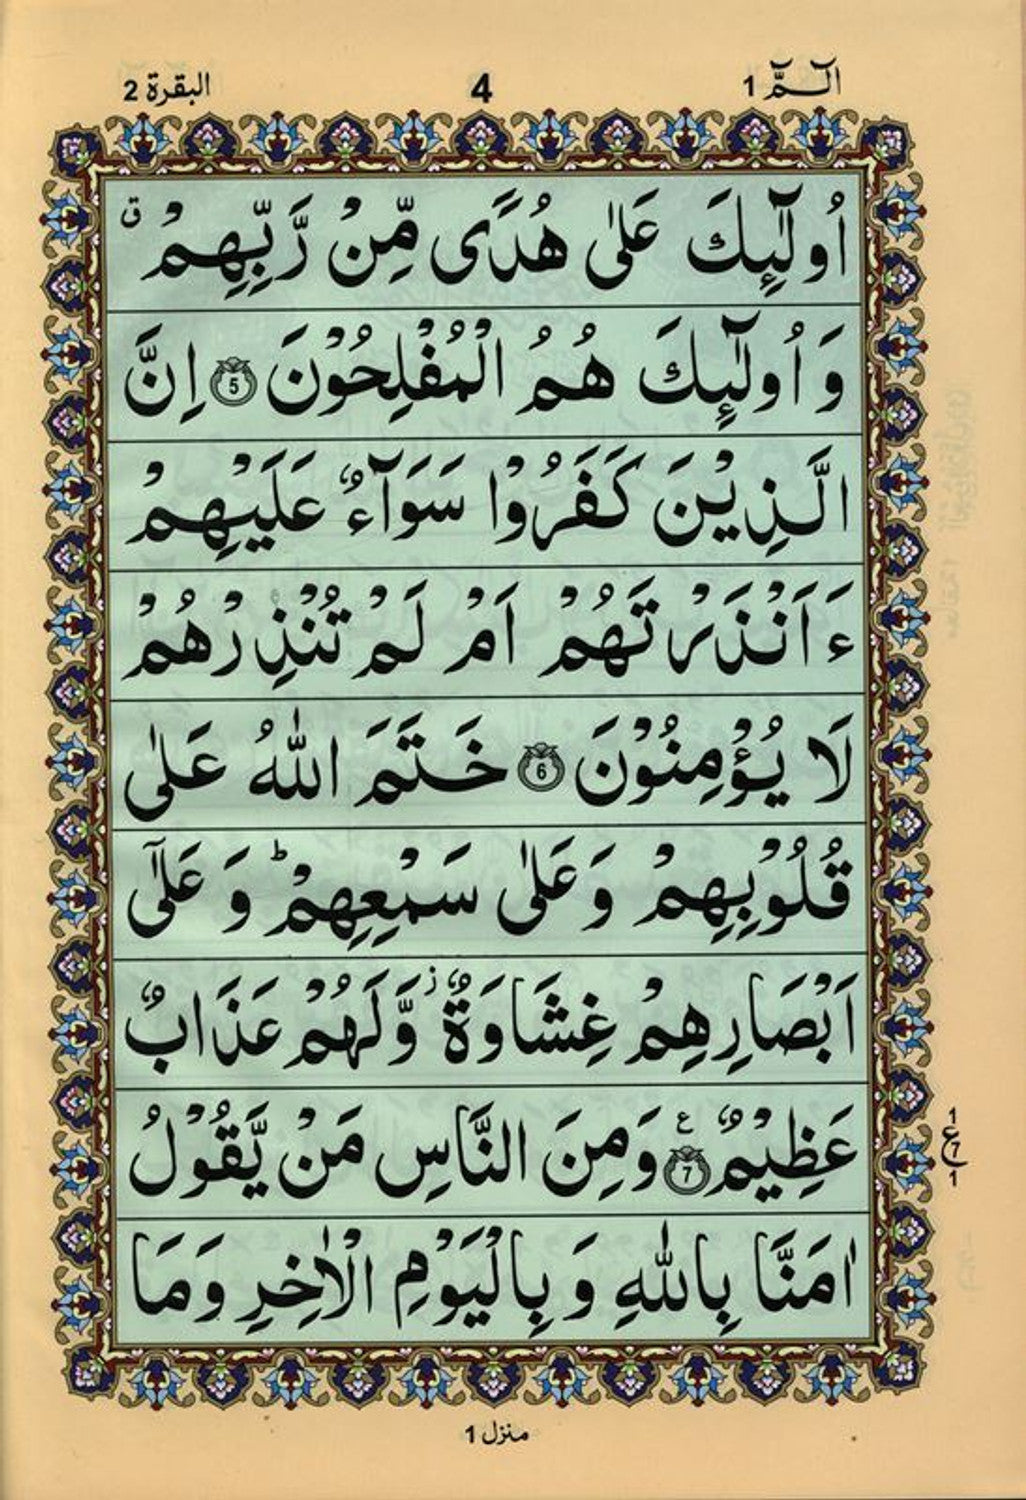 الٓـمّٓ 1
4
البقرة 2
اُولٰٓئِكَ عَلٰى هُدًى مِّنْ رَّبِّهِمْ ق
وَ اُولٰٓئِكَ هُمُ الْمُفْلِحُوْنَ 5 اِنَّ
الَّذِيْنَ كَفَرُوْا سَوَآءٌ عَلَيْهِمْ
ءَاَنْذَرْتَهُمْ اَمْ لَمْ تُنْذِرْهُمْ
لَا يُؤْمِنُوْنَ 6 خَتَمَ اللّٰهُ عَلٰى
قُلُوْبِهِمْ وَعَلٰى سَمْعِهِمْ ط وَ عَلٰٓى
اَبْصَارِهِمْ غِشَاوَةٌ ز وَّلَهُمْ عَذَابٌ
عَظِيْمٌ 7 ع وَمِنَ النَّاسِ مَنْ يَّقُوْلُ
اٰمَنَّا بِاللّٰهِ وَ بِالْيَوْمِ الْاٰخِرِ وَمَا
1
ع
7
1
منزل 1